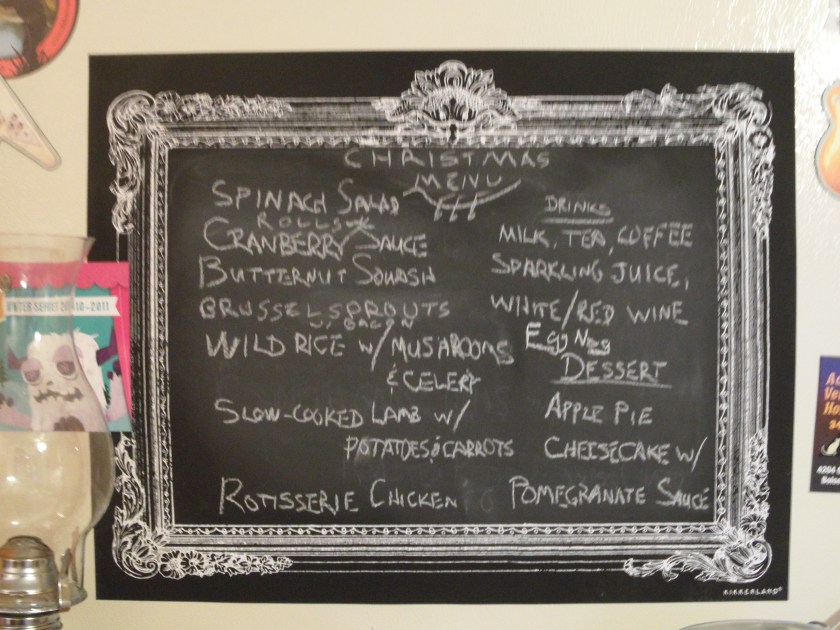 CHRISTMAS
MENU
SPINACH SALAD
ROLLS
CRANBERRY SAUCE
BUTTERNUT SQUASH
BRUSSEL SPROUTS
W/ BACON
WILD RICE W/ MUSHROOMS
& CELERY
SLOW-COOKED LAMB W/
POTATOES & CARROTS
ROTISSERIE CHICKEN
DRINKS
MILK, TEA, COFFEE
SPARKLING JUICE,
WHITE/RED WINE
Egg Nog
DESSERT
APPLE PIE
CHEESECAKE W/
POMEGRANATE SAUCE
KIKKERLAND®